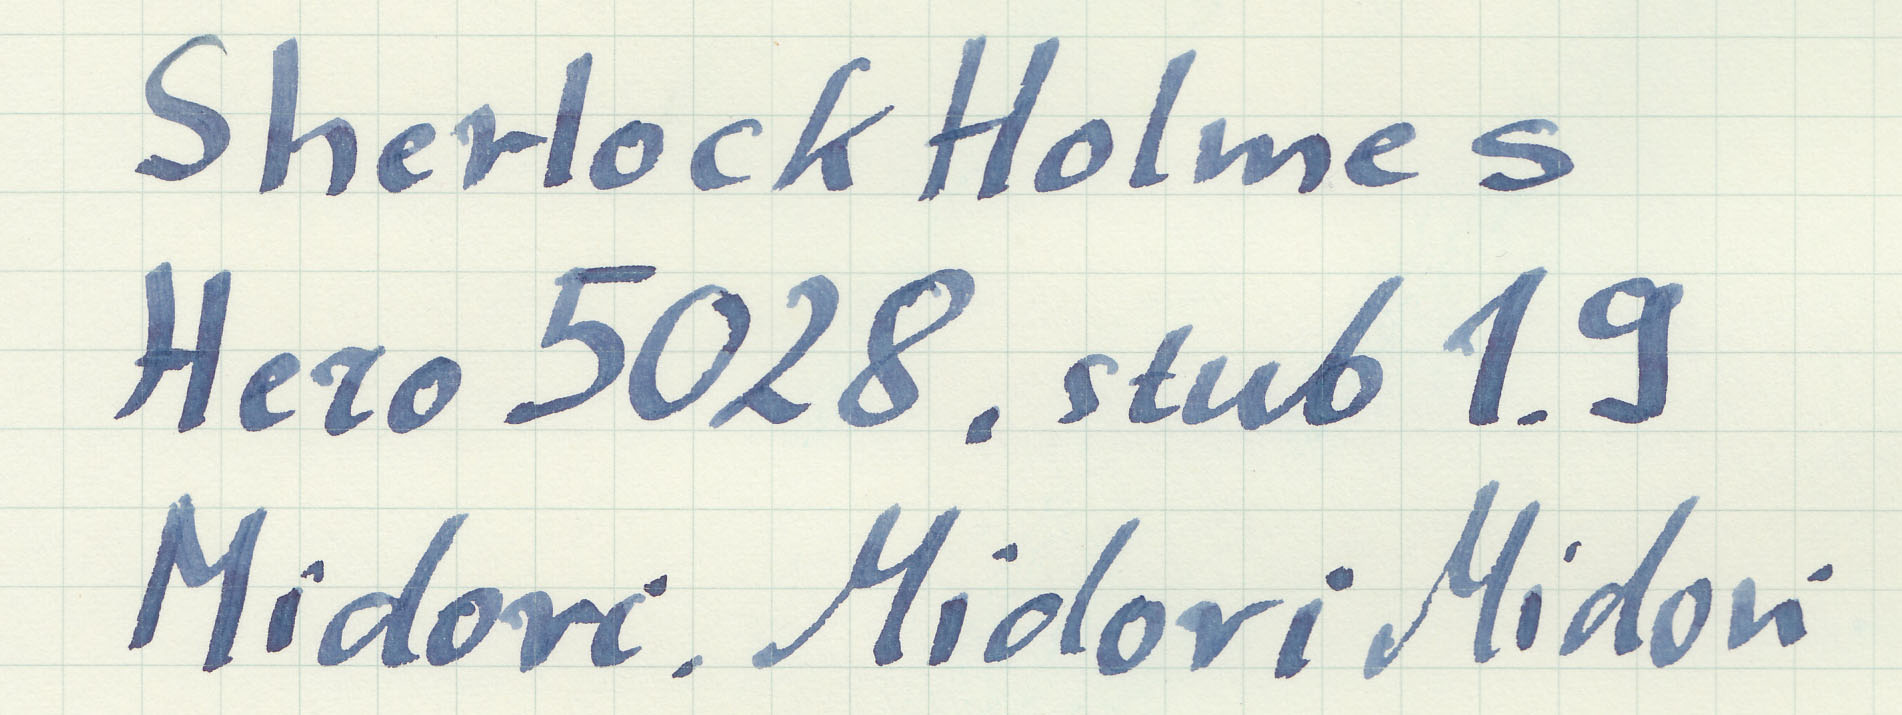 Sherlock Holmes
Hero 5028, stub 1.9
Midori. Midori Midori